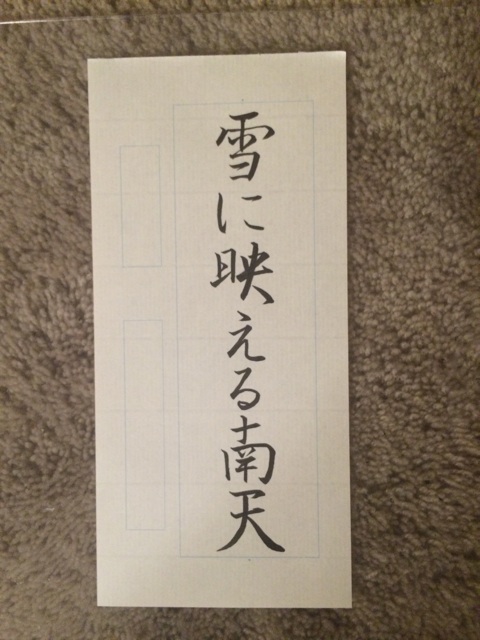 雪に映える南天